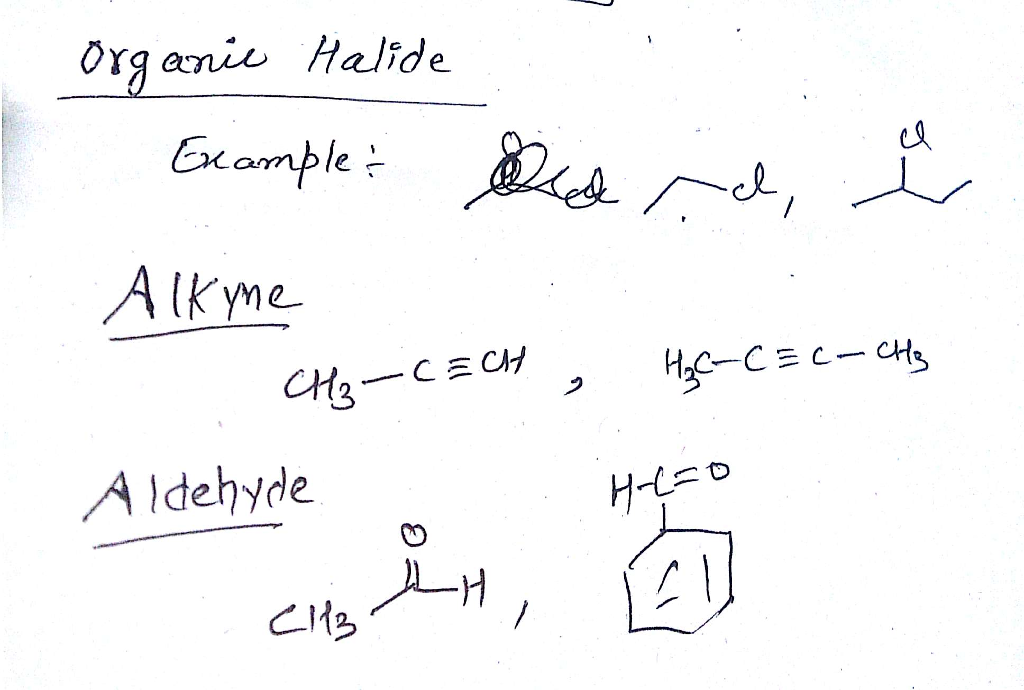 Organic Halide
Example :- Cl, Cl
Alkyne
CH3-C≡CH , H3C-C≡C-CH3
Aldehyde
H-C=O
O
CH3 H ,